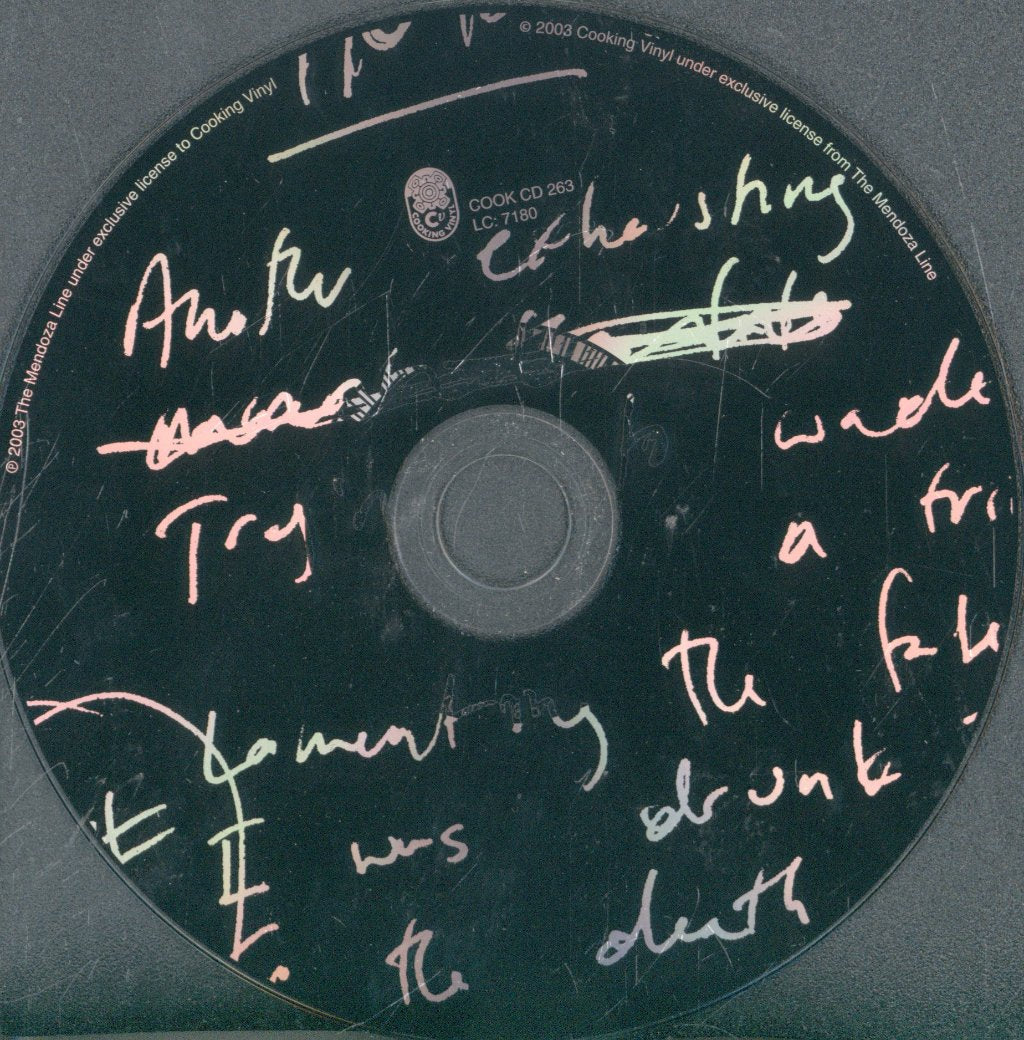 ℗ 2003 The Mendoza Line under exclusive license to Cooking Vinyl
© 2003 Cooking Vinyl under exclusive license from The Mendoza Line
COOK CD 263
LC: 7180
COOKING VINYL
Another exhausting
wade
Try a
Lamenting the
I was drunk
the death